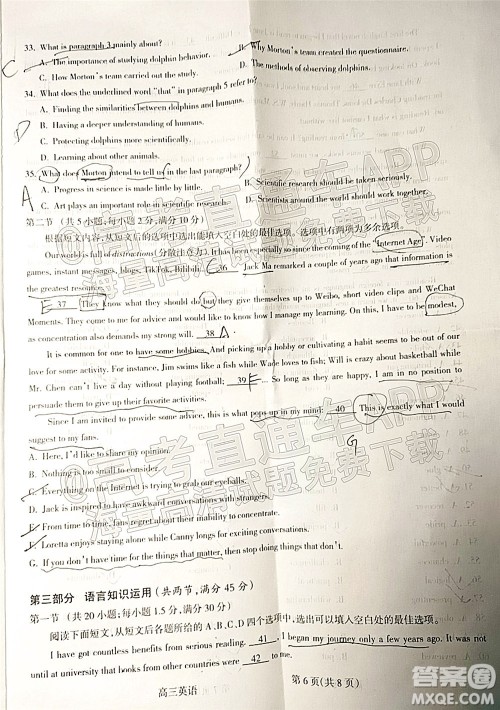 33. What is paragraph 3 mainly about?
A. The importance of studying dolphin behavior.
B. Why Morton's team created the questionnaire.
C
C. How Morton's team carried out the study.
D. The methods of observing dolphins.
34. What does the underlined word "that" in paragraph 5 refer to?
A. Finding the similarities between dolphins and humans.
B. Having a deeper understanding of humans.
D
C. Protecting dolphins more scientifically.
D. Learning about other animals.
35. What does Morton intend to tell us in the last paragraph?
A. Progress in science is made little by little.
B. Scientific research should be taken seriously.
A
C. Art plays an important role in scientific research.
D. Scientists around the world should work together.
第二节 (共5小题;每小题2分,满分10分)
根据短文内容,从短文后的选项中选出能填入空白处的最佳选项。选项中有两项为多余选项。
Our world is full of distractions(分散注意力)! It has been especially so since the coming of the "Internet Age". Video
games, instant messages, blogs, TikTok, Bilibili, C 36 Jack Ma remarked years ago that information is
the greatest resources.
E 37 They know what they should do but give themselves up to Weibo, short video clips and WeChat
Moments. They come to me for advice and would like to know how I manage my learning. On this I have to be modest,
as concentration also demands my strong will. 38 A
It is common for one to have some hobbies. And picking up a hobby or cultivating a habit seems to be out of our
love for happiness. For instance, Jim swims like a fish while Wade loves to fish; Will is crazy about basketball while
Mr. Chen can't live a day without playing football; 39 F. So long as they are happy, I am in no position to
persuade them to give up their favorite activities.
Since I am invited to provide some advice, this is what pops up in my mind: 40 This is exactly what I would
suggest to my fans.
G
A. Here, I'd like to share my opinion.
B. Nothing is too small to consider.
C. Everything on the Internet is trying to grab our eyeballs.
D. Jack is inspired to have awkward conversations with strangers.
E. From time to time, fans regret about their inability to concentrate.
F. Loretta enjoys staying alone while Canny longs for exciting conversations.
G. If you don't have time for the things that matter, then stop doing the things that don't.
第三部分 语言知识运用(共两节,满分45分)
第一节 (共20小题;每小题1.5分,满分30分)
阅读下面短文,从短文后各题所给的A、B、C、D四个选项中,选出可以填入空白处的最佳选项。
I have got countless benefits from serious reading. 41, I began my journey only a few years ago. It was not
until at university that books from other countries were 42 to me.
高三英语
第6页(共8页)
@高考直通车APP
海量高清试题免费下载
@高考直通车APP
海量高清试题免费下载
答案圈
MXQE.COM